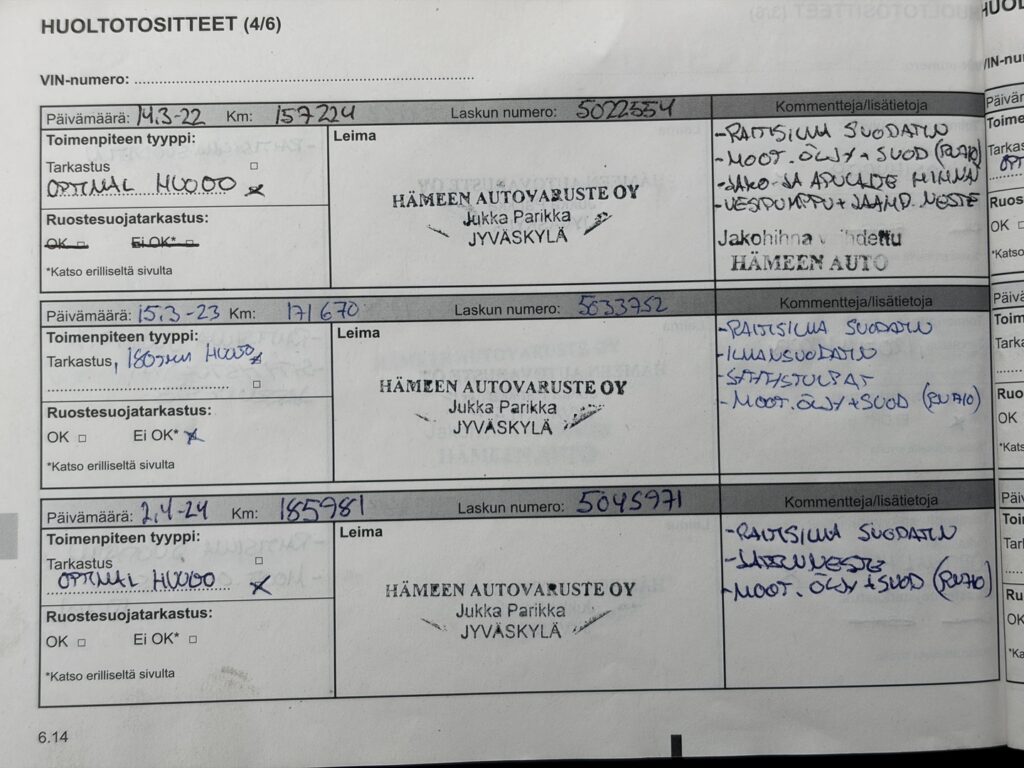 HUOLTOTOSITTEET (4/6)
VIN-numero:
Päivämäärä: 14.3-22 Km: 157224 Laskun numero: 5022554 Kommentteja/lisätietoja
Toimenpiteen tyyppi:
Tarkastus
OPTIMAL HUOLTO x
Ruostesuojatarkastus:
OK Ei OK*
*Katso erilliseltä sivulta
Leima
HÄMEEN AUTOVARUSTE OY
Jukka Parikka
JYVÄSKYLÄ
-RAITISILMA SUODATIN
-MOOT.ÖLJY+SUOD (RN710)
-JAKO-JA APULAITE HIHNA
-VESIPUMPPU+JÄÄHD.NESTE
Jakohihna vaihdettu
HÄMEEN AUTO
Päivämäärä: 15.3-23 Km: 171670 Laskun numero: 5033752 Kommentteja/lisätietoja
Toimenpiteen tyyppi:
Tarkastus, 180TKM HUOLTO x
Ruostesuojatarkastus:
OK Ei OK* x
*Katso erilliseltä sivulta
Leima
HÄMEEN AUTOVARUSTE OY
Jukka Parikka
JYVÄSKYLÄ
-RAITISILMA SUODATIN
-ILMANSUODATIN
-SYTYTYSTULPAT
-MOOT.ÖLJY+SUOD (RN710)
Päivämäärä: 2.4-24 Km: 185981 Laskun numero: 5045971 Kommentteja/lisätietoja
Toimenpiteen tyyppi:
Tarkastus
OPTIMAL HUOLTO x
Ruostesuojatarkastus:
OK Ei OK*
*Katso erilliseltä sivulta
Leima
HÄMEEN AUTOVARUSTE OY
Jukka Parikka
JYVÄSKYLÄ
-RAITISILMA SUODATIN
-JARRUNESTE
-MOOT.ÖLJY+SUOD (RN710)
6.14